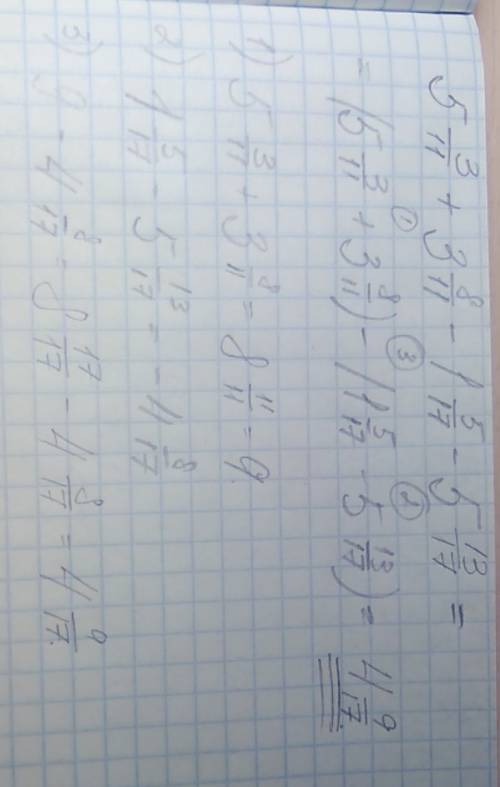 5 3/11 + 3 8/11 - 1 5/17 - 5 13/17 =
① ③ ②
= (5 3/11 + 3 8/11) - (1 5/17 - 5 13/17) = 4 9/17.
1) 5 3/11 + 3 8/11 = 8 11/11 = 9.
2) 1 5/17 - 5 13/17 = - 4 8/17
3) 9 - 4 8/17 = 8 17/17 - 4 8/17 = 4 9/17.